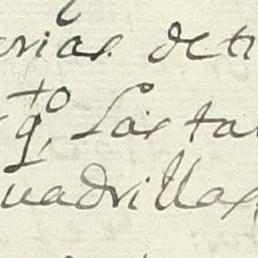 erias de ti
qto, Las ta
uadrillas